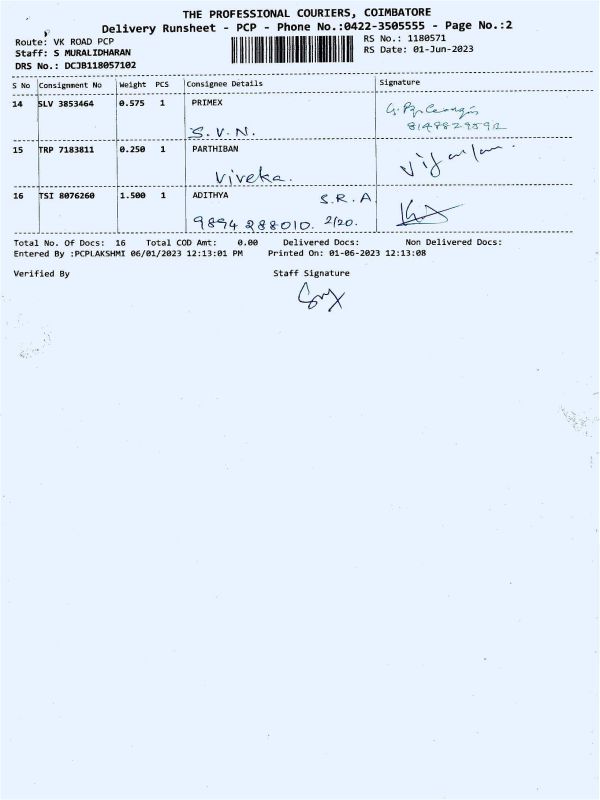 THE PROFESSIONAL COURIERS, COIMBATORE
Delivery Runsheet - PCP - Phone No.:0422-3505555 - Page No.:2
Route: VK ROAD PCP RS No.: 1180571
Staff: S MURALIDHARAN RS Date: 01-Jun-2023
DRS No.: DCJB118057102
S No Consignment No Weight PCS Consignee Details Signature
14 SLV 3853464 0.575 1 PRIMEX
S.V.N.
15 TRP 7183811 0.250 1 PARTHIBAN
Viveka.
16 TSI 8076260 1.500 1 ADITHYA S.R.A
9894288010. 2/20.
Total No. Of Docs: 16 Total COD Amt: 0.00 Delivered Docs: Non Delivered Docs:
Entered By :PCPLAKSHMI 06/01/2023 12:13:01 PM Printed On: 01-06-2023 12:13:08
Verified By Staff Signature